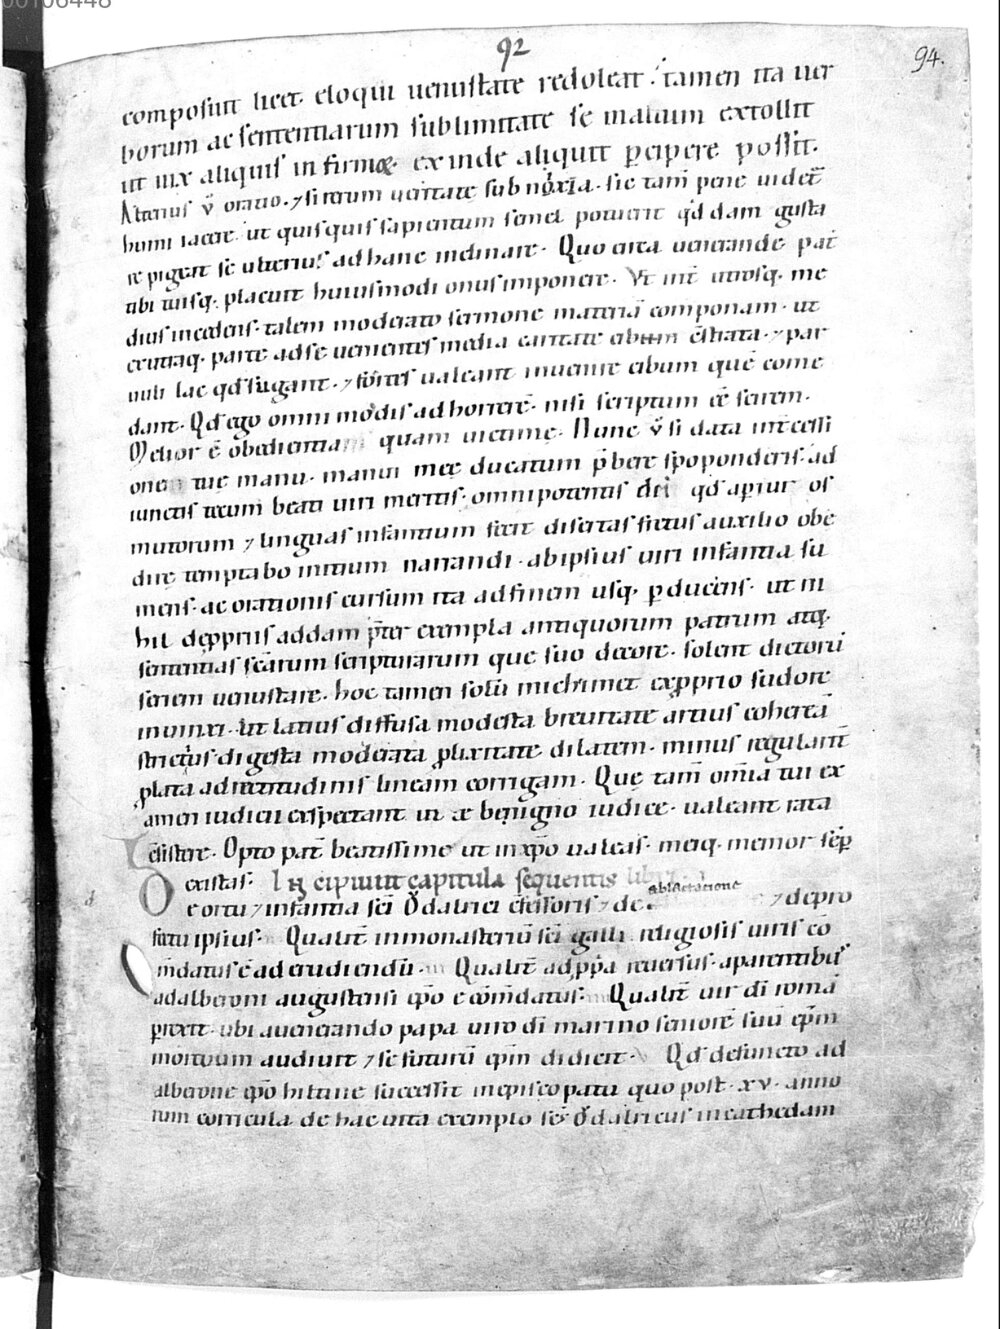 00106448
92
94.
composuit licet eloqui uenustate redoleat. tamen ita uer
borum ac sententiarum sublimitate se in altum extollit
ut uix aliquis infirmꝰ exinde aliquit ꝑcipere possit.
Alterius v̊ oratio. ⁊ si rerum ueritate subnixa. sic tam̄ pene uidet̄
humi iacere. ut quisquis sapientum semel potuerit qd̄dam gusta
re pigeat se ulterius ad hanc inclinare. Quo circa uenerande pat̄
tibi tuisq; placuit huiusmodi onus imponere. Vt int̄ utrosq; me
dius incedens. talem moderato sermone materiā componam. ut
ex utraq; parte ad se uenientes media caritate cibum c̄strata. ⁊ par
uuli lac qd̄ sugant. ⁊ fortes ualeant inuenire cibum quē come
dant. Qd̄ ego omnimodis adhorrerē. nisi scriptum eē scirem.
Melior ē obedientia quam uictimę. Nunc v̊ si data int̄cessi
one tuę manu. manui meę ducatum p̄bere spoponderis. ad
iunctis tecum beati uiri meritis. omnipotentis dei qd̄ aperuit os
mutorum ⁊ linguas infantium fecit disertas fretus auxilio obę
dire temptabo initium narrandi. ab ipsius uiri infantia su
mens. ac orationis cursum ita ad finem usq; ꝑducens. ut ni
hil de ꝓpriis addam p̄ter exempla antiquorum patrum atq;
sententias scārum scripturarum quę suo decore. solent dictorū
seriem uenustare. hoc tamen solū michimet ex ꝓprio sudore
iniunxi. ut latius diffusa modesta breuitate artius coherceā
strictius digesta moderata ꝓlixitate dilatem. minus regularit̄
ꝓlata ad rectitudinis lineam corrigam. Quę tam̄ om̄ia tui ex
amen iudicii exspectant ut ex benigno iudice. ualeant rata
c̄sistere. Opto pat̄ beatissime ut in xp̄o ualeas. meiq; memor sēp
existas. Incipiunt capitula sequentis libri.
De ortu ⁊ infantia sci Ǒdalrici c̄fessoris ⁊ de ablactatione ⁊ de pro
fectu ipsius. Qualit̄ in monasteriū sci galli religiosis uiris cō
m̄datus ē ad erudiendū. Qualit̄ ad ꝓpria reuersus. a parentibus
adalberoni augustensi epo ē com̄datus. Qualit̄ uir di romā
prexit. ubi a uenerando papa uiro di marino seniorē suū epm̄
mortuum audiuit ⁊ se futurū epm̄ didicit. Qd̄ defuncto ad
alberone epo hiltine successit in episcopatu quo post .xv. anno
rum corricula de hac uita exempto scs̄ Ǒdalricus in cathedam